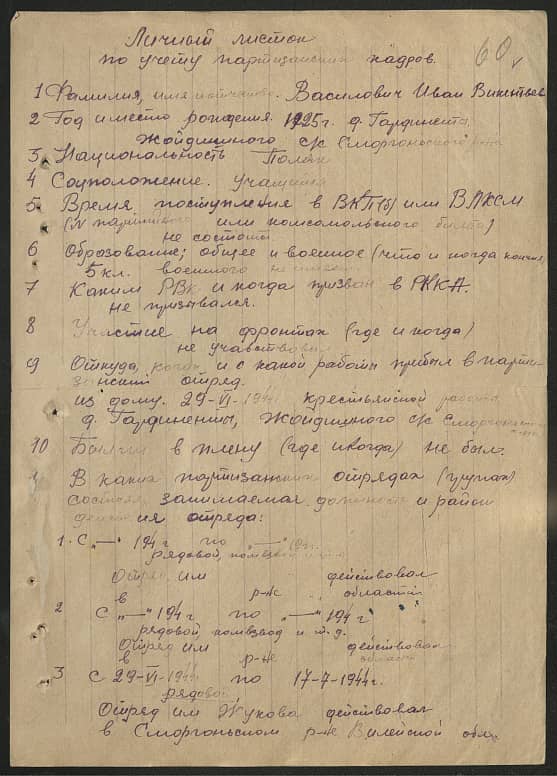 Личный листок
по учету партизанских кадров.
60
1 Фамилия, имя и отчество. Василович Иван Викентьев
2 Год и место рождения. 1925г. д. Гардинента,
Жойдишкого с/с Сморгоньского
3 Национальность Поляк
4 Соцположение. Учащийся
5 Время поступления в ВКП(б) или ВЛКСМ
(№ партийного или комсомольского билета)
не состоял.
6 Образование; общее и военное (что и когда кончил)
5 кл. военного не имеет.
7 Каким РВК и когда призван в РККА.
не призывался.
8 Участие на фронтах (где и когда)
не учавствовал
9 Откуда, когда и с какой работы прибыл в парти-
занский отряд.
из дому. 29-VI-1944 крестьянской работы
д. Гардиненты, Жойдишкого с/с
10 Был ли в плену (где и когда) не был.
В каких партизанских отрядах (группах)
состоял занимаемая должность и район
действия отряда:
1. С "—" 194 г по "—" 194 г.
рядовой, комвзвод
Отряд им действовал
в р-не области
2 С "—" 194 г по "—" 194 г
рядовой, комвзвод и т.д.
Отряд им действовал
в р-не области
3 С 29-VI-1944 по 17-7-1944г.
рядовой
Отряд им Жукова действовал
в Сморгоньском р-не Вилейской обл.